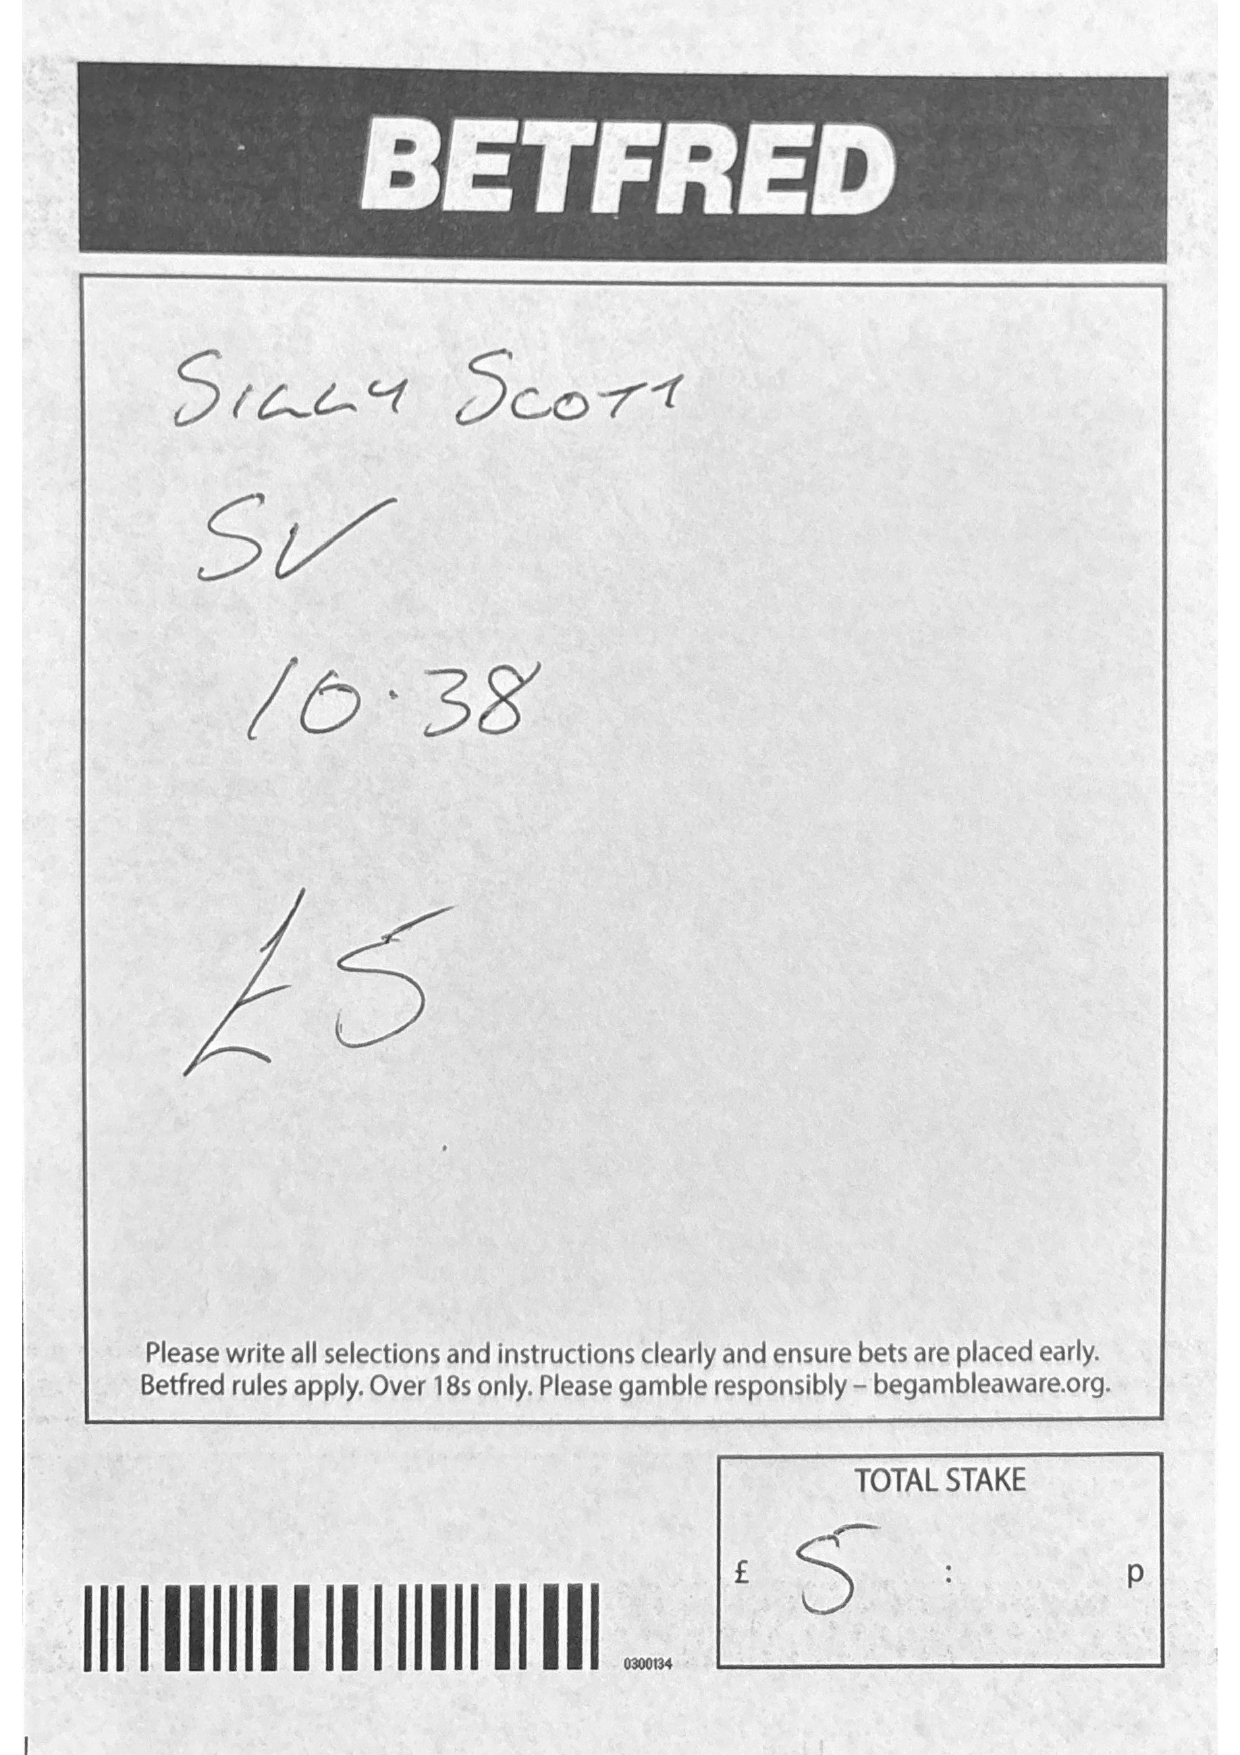 BETFRED
SILLY SCOTT
SV
10.38
£5
Please write all selections and instructions clearly and ensure bets are placed early.
Betfred rules apply. Over 18s only. Please gamble responsibly – begambleaware.org.
TOTAL STAKE
£ 5 : p
0300134